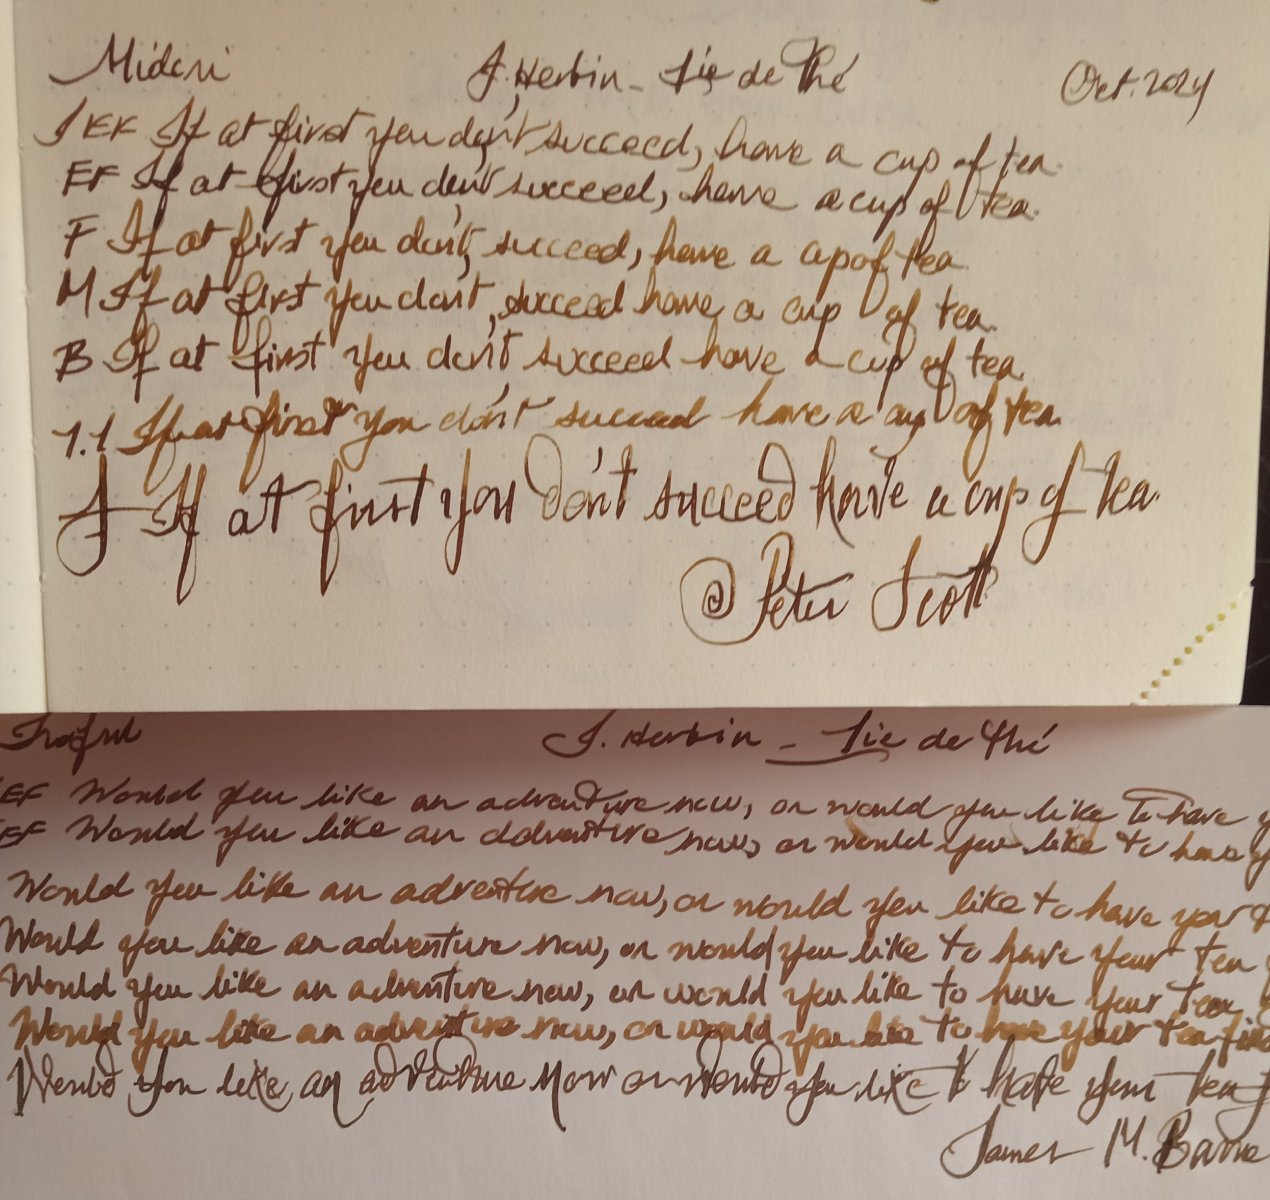 Midori J. Herbin - Lie de Thé Oct. 2024
J EF If at first you don't succeed, have a cup of tea.
EF If at first you don't succeed, have a cup of tea.
F If at first you don't, succeed, have a cup of tea
M If at first you don't, succeed have a cup of tea.
B If at first you don't succeed have a cup of tea.
1.1 If at first you don't succeed have a cup of tea.
J If at first you don't succeed have a cup of tea.
@ Peter Scott
J. Herbin - Lie de Thé
EF Would you like an adventure now, or would you like to have y
EF Would you like an adventure now, or would you like to have y
Would you like an adventure now, or would you like to have your t
Would you like an adventure now, or would you like to have your tea
Would you like an adventure now, or would you like to have your tea
Would you like an adventure now, or would you like to have your tea fir
Would you like an adventure now or would you like to have your tea f
James M. Barrie